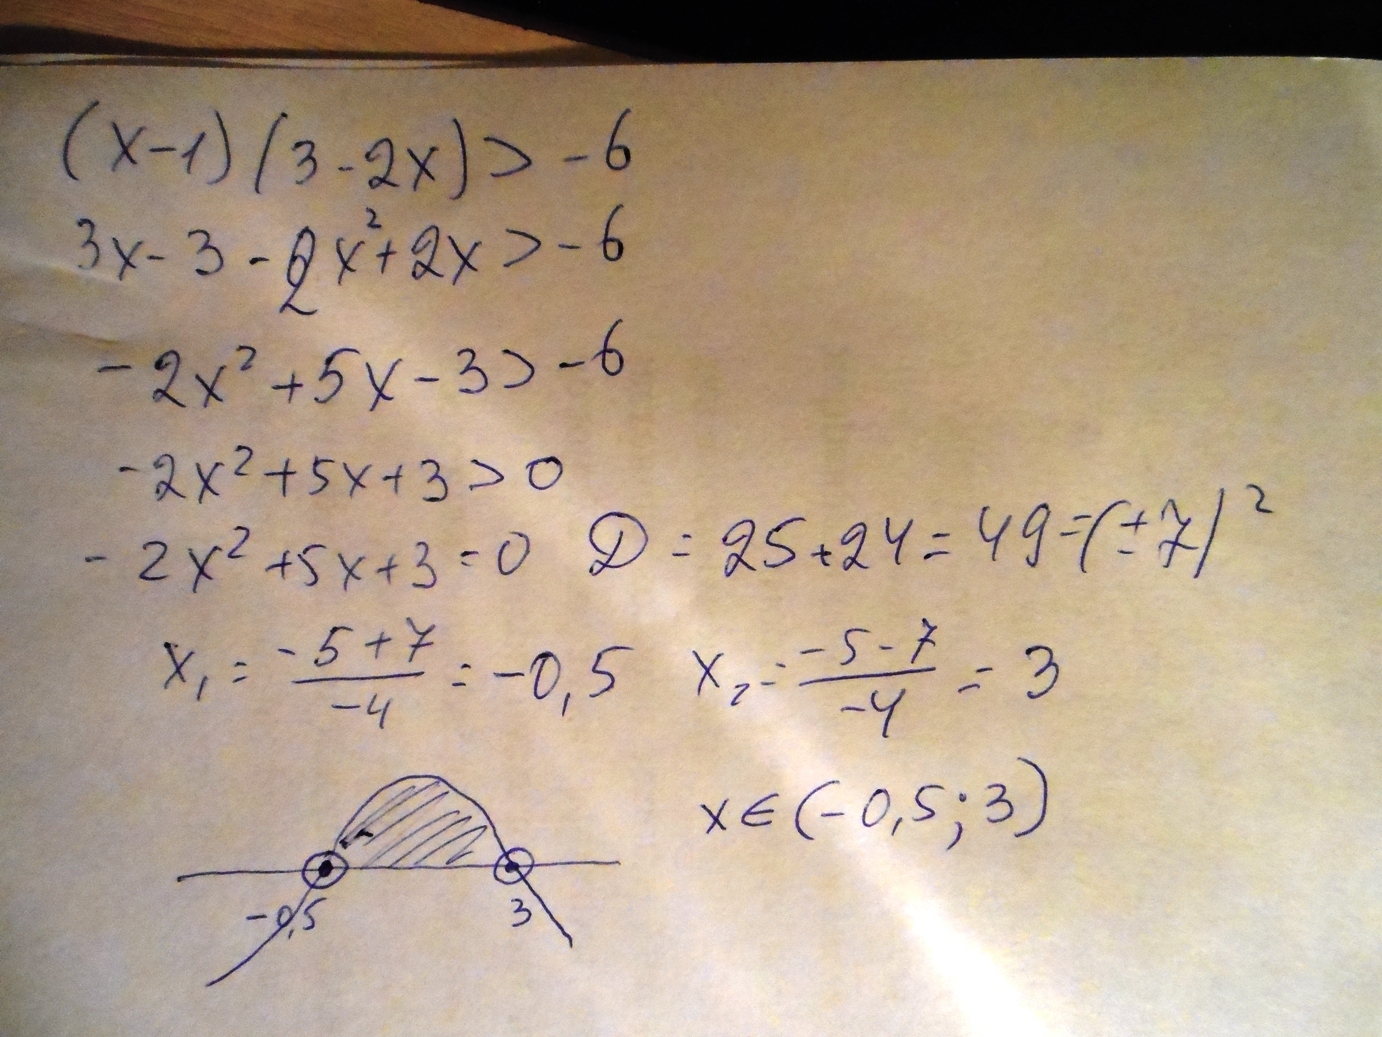 (x-1)(3-2x)>-6
3x-3-2x²+2x>-6
-2x²+5x-3>-6
-2x²+5x+3>0
-2x²+5x+3=0 D=25+24=49=(±7)²
x₁=(-5+7)/-4=-0,5 x₂=(-5-7)/-4=3
x∈(-0,5;3)
-0,5 3